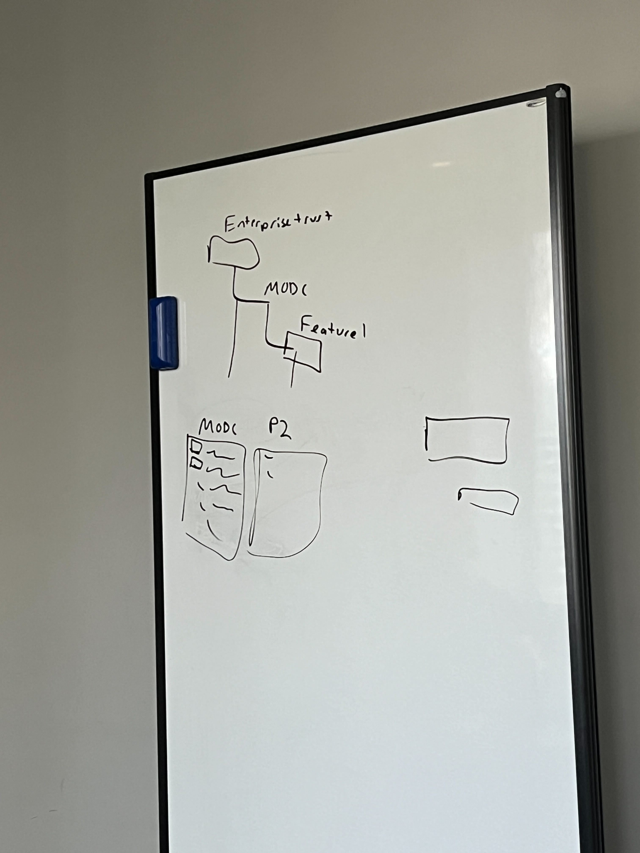 Enterprise trust
MODC
Feature 1
MODC P2